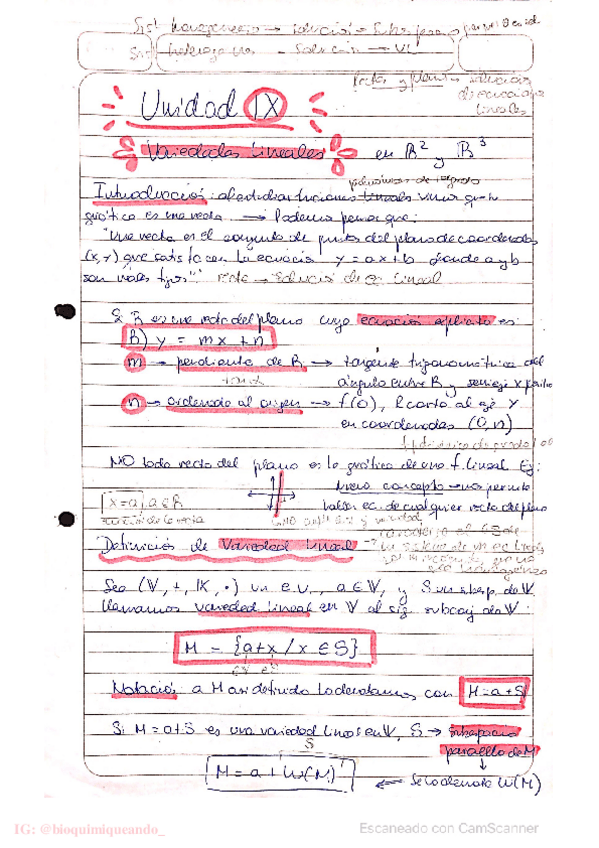 Sist homogeneo → solución → Subespacio
Solución → VL
Recta y plano → solución
de ecuaciones
lineales
Unidad IX
Variedades Lineales en R² y R³
Introducción: al estudiar funciones lineales vimos que su
gráfico es una recta → Podemos pensar que:
"Una recta es el conjunto de puntos del plano de coordenadas
(x, y) que satisfacen la ecuación y = ax + b donde a y b
son reales fijos" recta → Solución de ec lineal
Si R es una recta del plano cuya ecuación explícita es:
R) y = mx + n
m → pendiente de R → tangente trigonométrica del
ángulo entre R y semieje x positivo
n → ordenada al origen → f(0), R corta al eje Y
en coordenadas (0, n)
NO toda recta del plano es la gráfica de una f. lineal. Ej:
Nuevo concepto → nos permite
x = a, a ∈ R
hallar ec. de cualquier recta del plano
Definición de Variedad Lineal
Sea (V, +, K, ·) un e.v., a ∈ V, y S un subesp. de V
llamamos variedad lineal en V al sig. subconj de V:
M = {a+x / x ∈ S}
∈V ∈S
Notación: a M así definido lo denotamos con M = a + S
Si M = a+S es una variedad lineal en V, S → subespacio
paralelo de M
S
M = a + W(M)
← Se lo denota W(M)
IG: @bioquimiqueando_
Escaneado con CamScanner